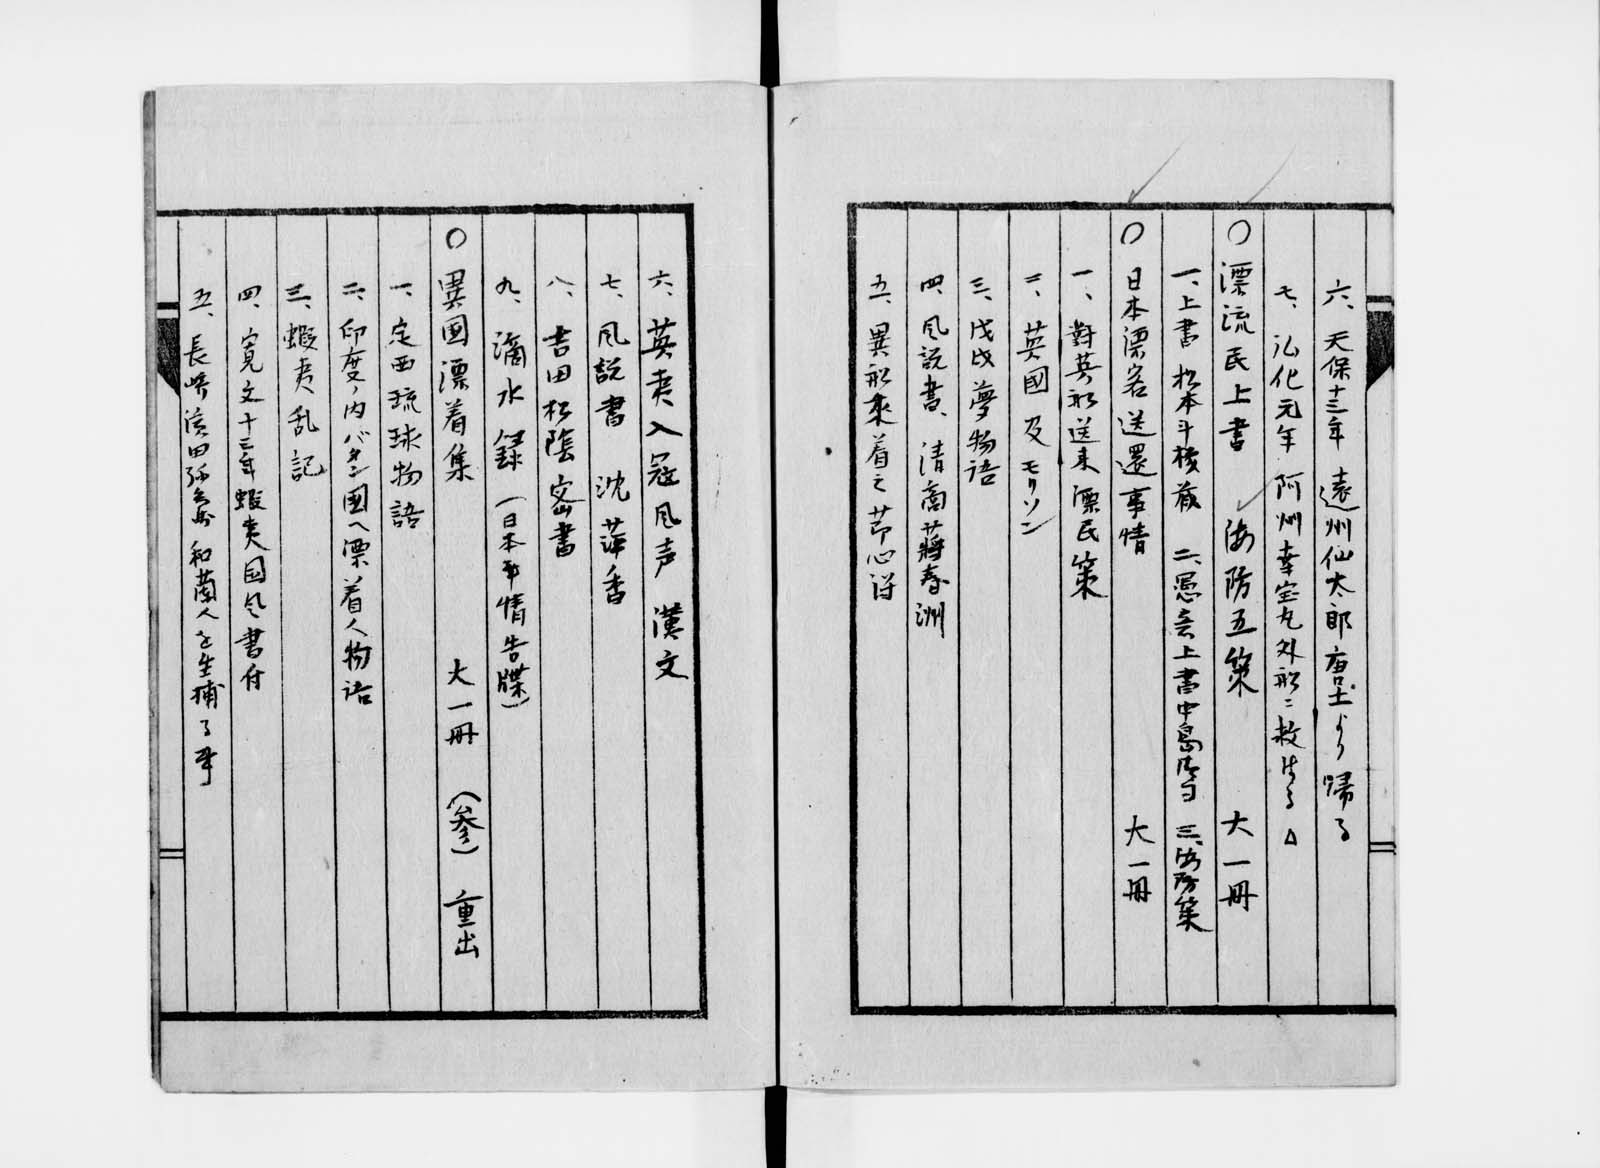 六、天保十三年 遠州仙太郎 唐土より帰る
七、弘化元年 阿州幸宝丸外船ニ救はる △
○漂流民上書 海防五策 大一冊
一、上書 松本斗機蔵 二、愚意上書 中島清司 三、海防策
○日本漂客送還事情 大一冊
一、對英船送来漂民策
二、英國及モリソン
三、戊戌夢物語
四、風説書、清商蔣春洲
五、異船来着之節心得
六、英夷入冦風声 漢文
七、風説書 沈萍香
八、吉田松陰密書
九、滴水録(日本事情告牒)
○異国漂着集 大一冊 (参) 重出
一、定西琉球物語
二、印度ノ内バタン國ヘ漂着人物語
三、蝦夷乱記
四、寛文十三年蝦夷国々書付
五、長崎濱田弥兵衛和蘭人を生捕る事